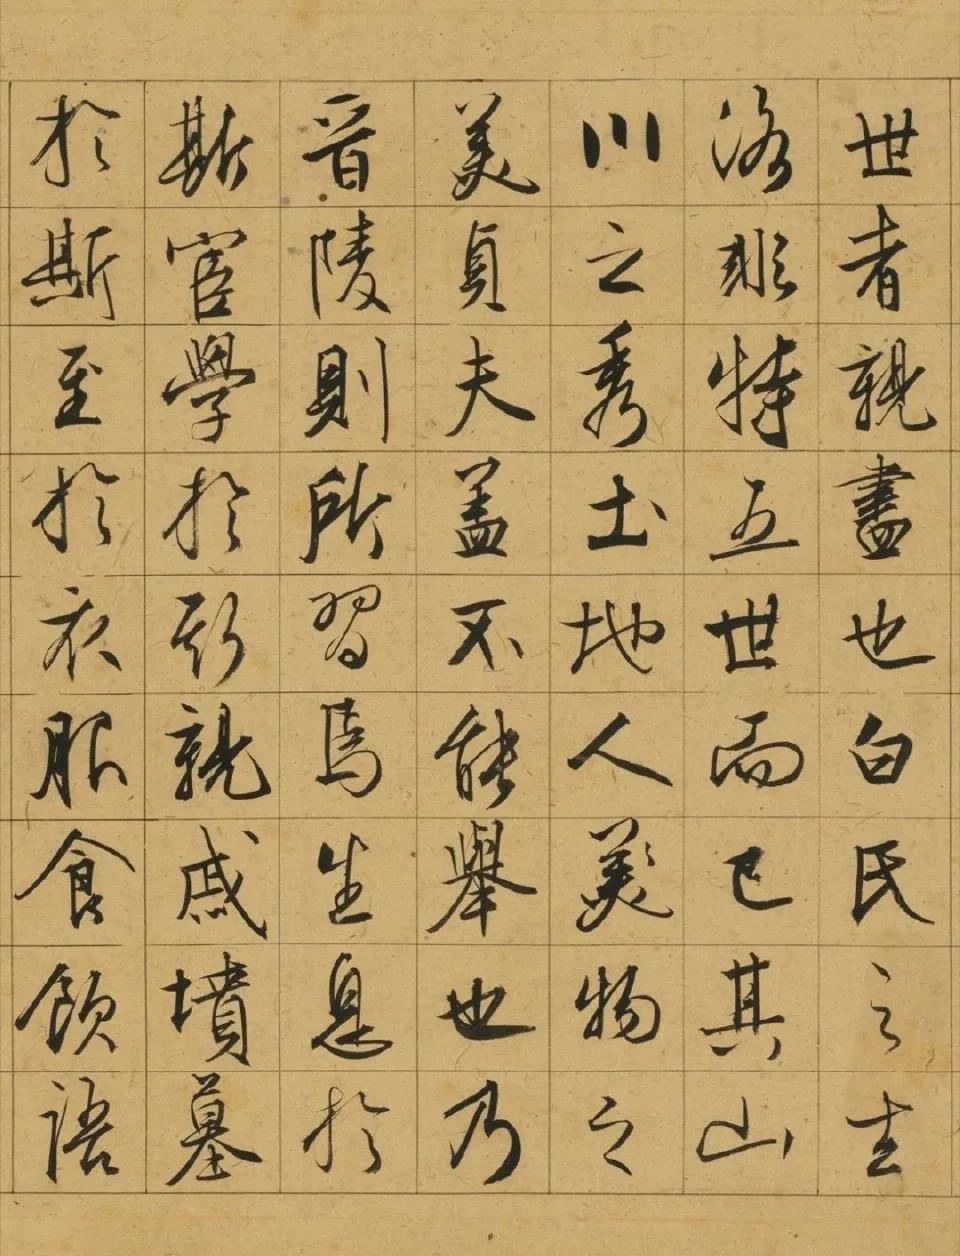 世者親盡也白氏之去
洛特五世而已其山
川之秀土地人美物之
美貞夫蓋不能舉也乃
晉陵則所習焉生息於
斯宦學於斯親戚墳墓
於斯至於衣服食飲語